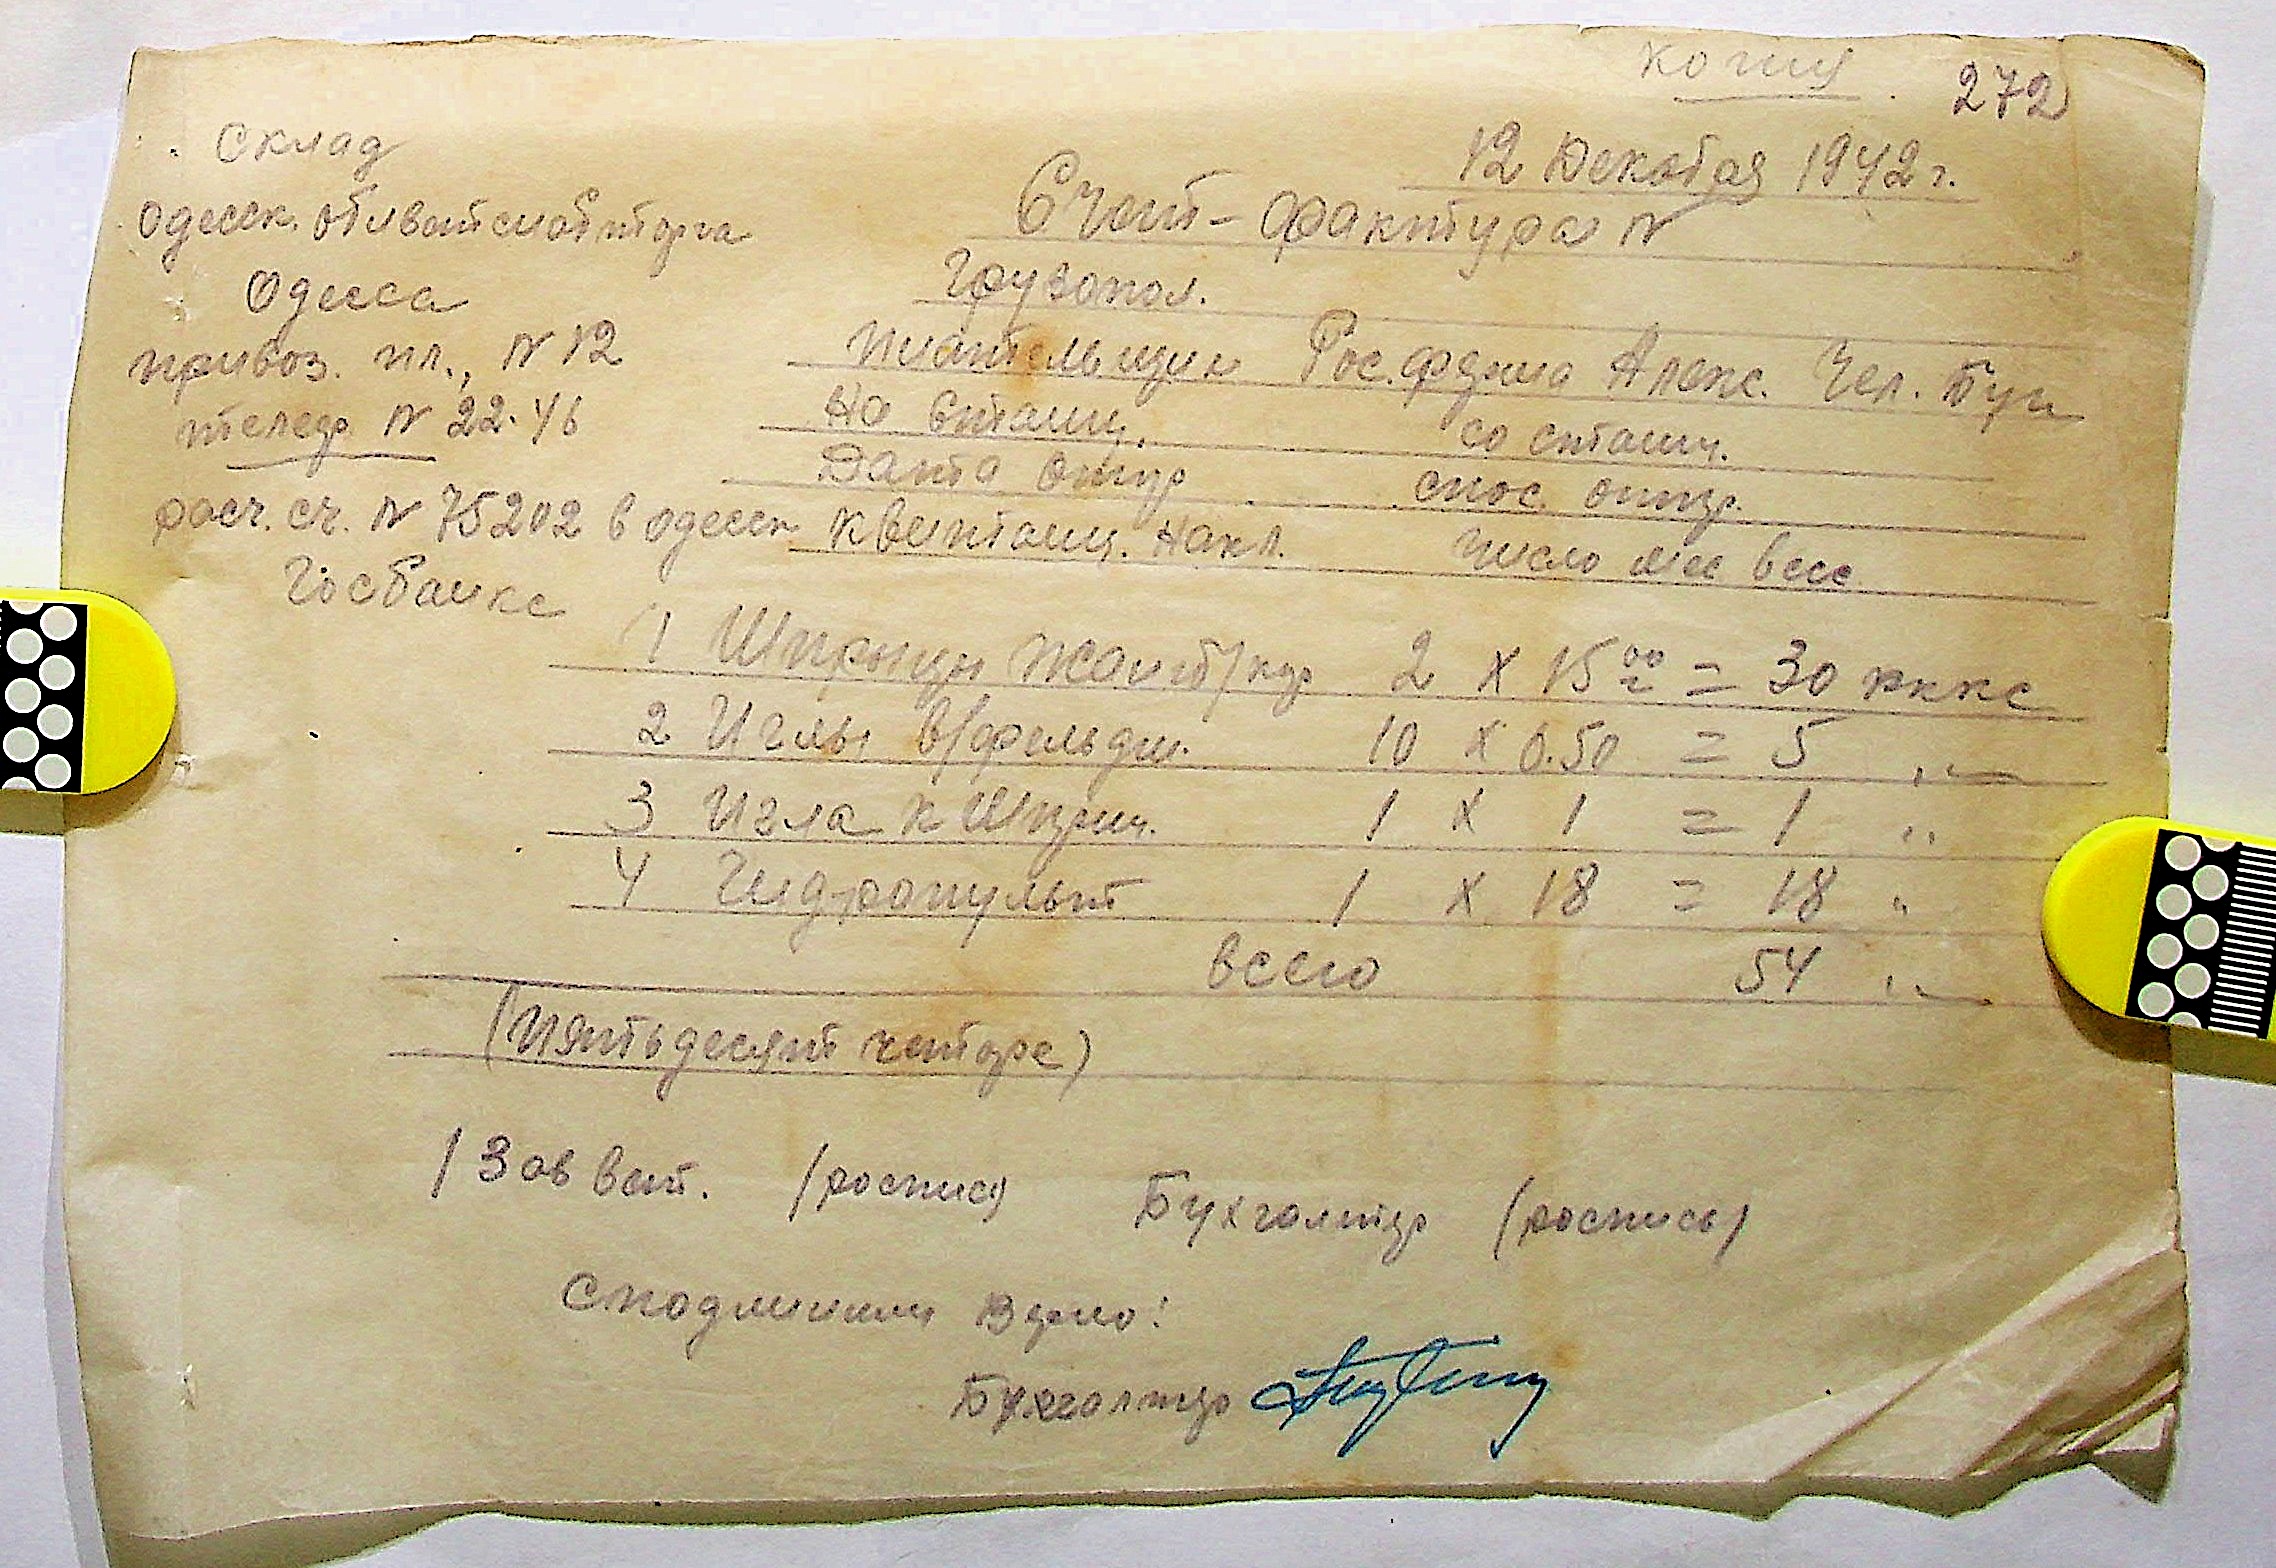 копия 272
12 Декабря 1942 г.
Склад
Одесск. облветснабторга
Одесса
привоз. пл., N 12
телеф N 22-46
расч. сч. N 75202 в одесск
Госбанке
Счет-фактура N
Грузопол.
Плательщик Гос. ферма Алекс.
На станц. со станц.
Дата отпр спос. отпр.
Квитанц. Накл. число мес весс
1 Шприцы 2 x 15 00 = 30 рккс
2 Иглы в/фельдш. 10 x 0.50 = 5 "
3 Игла к Шприц. 1 x 1 = 1 "
4 Гидропульт 1 x 18 = 18 "
всего 54 "
(Пятьдесят четыре)
/Зав вет. /роспись) Бухгалтер (роспись)
С подлинным Верно!
Бухгалтер